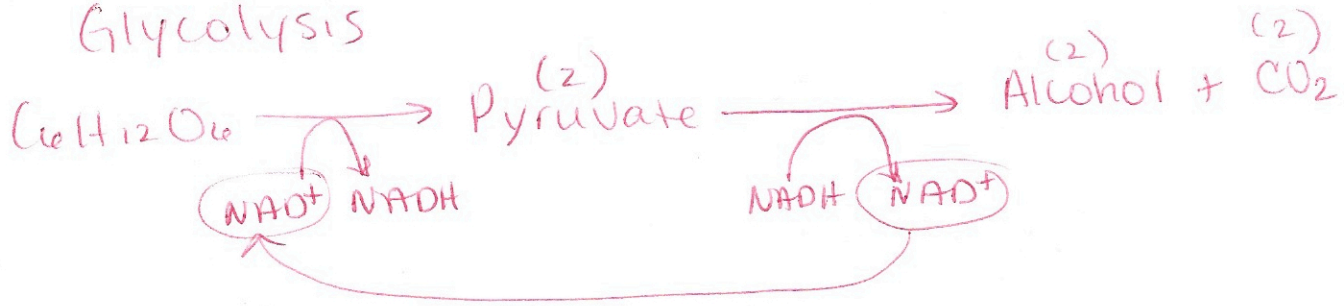 Glycolysis
(2) (2) (2)
C6H12O6 Pyruvate Alcohol + CO2
NAD+ NADH NADH NAD+